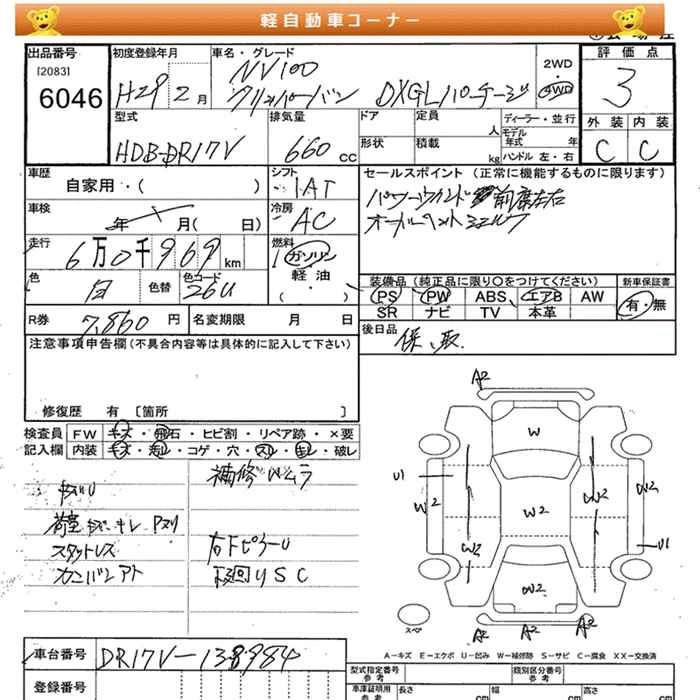 軽自動車コーナー
出品番号 初度登録年月 車名・グレード 2WD 評価点
[2083] 6046 H29 2月 NV100 4WD 3
クリッパーバン DXGLパッケージ
型式 排気量 ドア 定員 人 ディーラー・並行 外装 内装
HDB-DR17V 660cc 形状 積載 kg モデル年式 年 ハンドル 左・右 C C
車歴 自家用・( ) シフト IAT セールスポイント (正常に機能するものに限ります)
パワーウィンド 前席左右
車検 年 月( 日) 冷房 AC
走行 6万0千969km 燃料 ガソリン 軽油・( )
色 白 色替 色コード 26U
装備品 (純正品に限り○をつけてください) 新車保証書
PS PW ABS エアB AW 有・無
SR ナビ TV 本革
R券 7,860円 名変期限 月 日 後日品 保、取
注意事項申告欄(不具合内容等は具体的に記入して下さい)
修復歴 有 [箇所 ]
検査員 FW キズ・飛石・ヒビ割・リペア跡・×要
記入欄 内装 キズ・コゲ・穴・スレ・破レ
補修Wムラ
キズU
荷室キズ
スタットレス 右下ピラーU
カンバンアト 下回りSC
A2
W
U1 W2 W2 W2
W2 W2 U1
W2
A2 A2 A2
スペア
A-キズ E-エクボ U-凹み W-補修跡 S-サビ C-腐食 XX-交換済
車台番号 DR17V-138984
型式指定番号 参考 類別区分番号 参考
登録番号 車庫証明用 参考 長さ cm 幅 cm 高さ cm